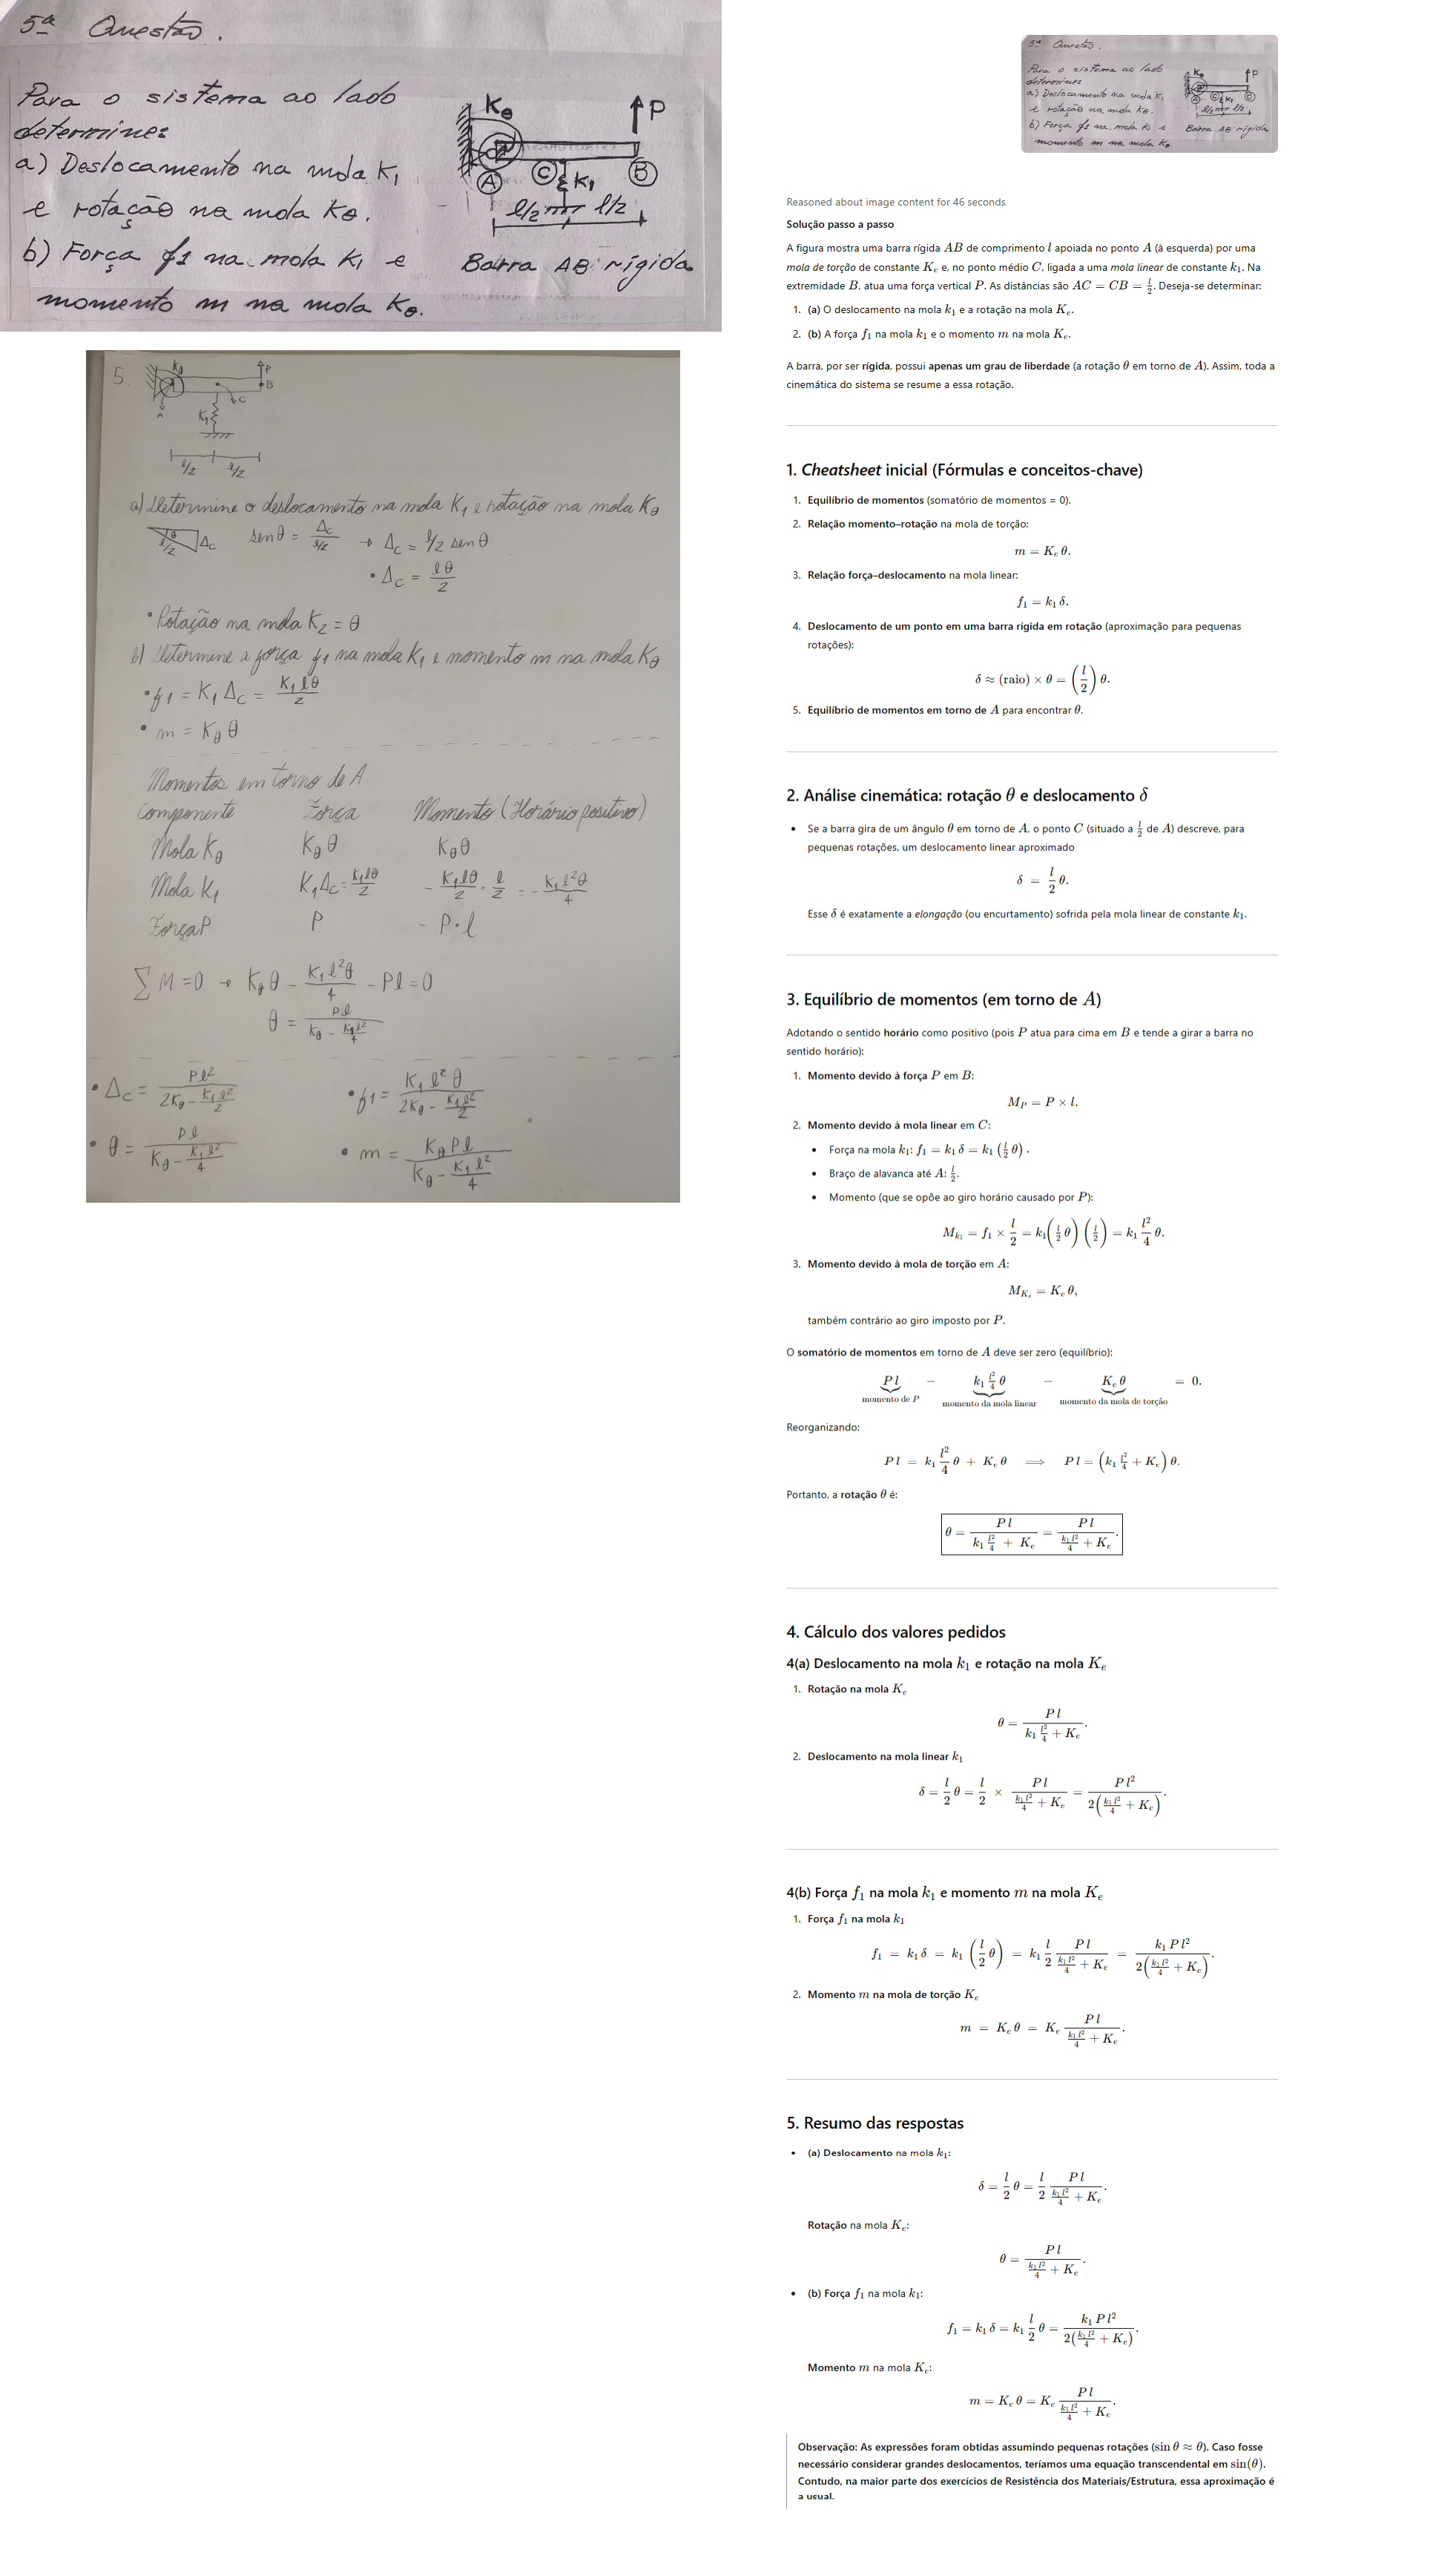 5ª Questão.
Para o sistema ao lado
determine:
a) Deslocamento na mola K₁
e rotação na mola Kθ.
b) Força f1 na mola K₁ e
momento m na mola Kθ.
Kθ
P
A
C
K₁
B
l/2 l/2
Barra AB rígida
5.
Kθ
P
B
C
A
K₁
l/2 l/2
a) Determine o deslocamento na mola K₁ e rotação na mola Kθ
θ l/2 Δc senθ = Δc/(l/2) → Δc = l/2 senθ
• Δc = lθ/2
• Rotação na mola K₂ = θ
b) Determine a força f1 na mola K₁ e momento m na mola Kθ
• f1 = K₁ Δc = K₁lθ/2
• m = Kθ θ
Momentos em torno de A
Componente Força Momento (Horário positivo)
Mola Kθ Kθ θ Kθ θ
Mola K₁ K₁Δc = K₁lθ/2 - K₁lθ/2 · l/2 = - K₁l²θ/4
Força P P - P·l
∑ M = 0 → Kθ θ - K₁l²θ/4 - Pl = 0
θ = Pl/(Kθ - K₁l²/4)
• Δc = Pl²/(2Kθ - K₁l²/2) • f1 = K₁ l² θ/(2Kθ - K₁l²/2)
• θ = Pl/(Kθ - K₁l²/4) • m = Kθ Pl/(Kθ - K₁l²/4)
5ª Questão.
Para o sistema ao lado
determine:
a) Deslocamento na mola K₁
e rotação na mola Kθ.
b) Força f1 na mola K₁ e
momento m na mola Kθ
Kθ
P
A
C
K₁
B
l/2 l/2
Barra AB rígida
Reasoned about image content for 46 seconds
Solução passo a passo
A figura mostra uma barra rígida AB de comprimento l apoiada no ponto A (à esquerda) por uma
mola de torção de constante Kₑ e, no ponto médio C, ligada a uma mola linear de constante k₁. Na
extremidade B, atua uma força vertical P. As distâncias são AC = CB = l/2. Deseja-se determinar:
1. (a) O deslocamento na mola k₁ e a rotação na mola Kₑ.
2. (b) A força f₁ na mola k₁ e o momento m na mola Kₑ.
A barra, por ser rígida, possui apenas um grau de liberdade (a rotação θ em torno de A). Assim, toda a
cinemática do sistema se resume a essa rotação.
1. Cheatsheet inicial (Fórmulas e conceitos-chave)
1. Equilíbrio de momentos (somatório de momentos = 0).
2. Relação momento–rotação na mola de torção:
m = Kₑ θ.
3. Relação força–deslocamento na mola linear:
f₁ = k₁ δ.
4. Deslocamento de um ponto em uma barra rígida em rotação (aproximação para pequenas
rotações):
δ ≈ (raio) × θ = (l/2) θ.
5. Equilíbrio de momentos em torno de A para encontrar θ.
2. Análise cinemática: rotação θ e deslocamento δ
• Se a barra gira de um ângulo θ em torno de A, o ponto C (situado a l/2 de A) descreve, para
pequenas rotações, um deslocamento linear aproximado
δ = l/2 θ.
Esse δ é exatamente a elongação (ou encurtamento) sofrida pela mola linear de constante k₁.
3. Equilíbrio de momentos (em torno de A)
Adotando o sentido horário como positivo (pois P atua para cima em B e tende a girar a barra no
sentido horário):
1. Momento devido à força P em B:
M_P = P × l.
2. Momento devido à mola linear em C:
• Força na mola k₁: f₁ = k₁ δ = k₁ (l/2 θ) .
• Braço de alavanca até A: l/2.
• Momento (que se opõe ao giro horário causado por P):
M_k₁ = f₁ × l/2 = k₁(l/2 θ) (l/2) = k₁ l²/4 θ.
3. Momento devido à mola de torção em A:
M_Kₑ = Kₑ θ,
também contrário ao giro imposto por P.
O somatório de momentos em torno de A deve ser zero (equilíbrio):
P l − k₁ l²/4 θ − Kₑ θ = 0.
momento de P momento da mola linear momento da mola de torção
Reorganizando:
P l = k₁ l²/4 θ + Kₑ θ ⟹ P l = (k₁ l²/4 + Kₑ) θ.
Portanto, a rotação θ é:
θ = P l/(k₁ l²/4 + Kₑ) = P l/(k₁ l²/4 + Kₑ).
4. Cálculo dos valores pedidos
4(a) Deslocamento na mola k₁ e rotação na mola Kₑ
1. Rotação na mola Kₑ
θ = P l/(k₁ l²/4 + Kₑ).
2. Deslocamento na mola linear k₁
δ = l/2 θ = l/2 × P l/(k₁ l²/4 + Kₑ) = P l²/2(k₁ l²/4 + Kₑ).
4(b) Força f₁ na mola k₁ e momento m na mola Kₑ
1. Força f₁ na mola k₁
f₁ = k₁ δ = k₁ (l/2 θ) = k₁ l/2 P l/(k₁ l²/4 + Kₑ) = k₁ P l²/2(k₁ l²/4 + Kₑ).
2. Momento m na mola de torção Kₑ
m = Kₑ θ = Kₑ P l/(k₁ l²/4 + Kₑ).
5. Resumo das respostas
• (a) Deslocamento na mola k₁:
δ = l/2 θ = l/2 P l/(k₁ l²/4 + Kₑ).
Rotação na mola Kₑ:
θ = P l/(k₁ l²/4 + Kₑ).
• (b) Força f₁ na mola k₁:
f₁ = k₁ δ = k₁ l/2 θ = k₁ P l²/2(k₁ l²/4 + Kₑ).
Momento m na mola Kₑ:
m = Kₑ θ = Kₑ P l/(k₁ l²/4 + Kₑ).
Observação: As expressões foram obtidas assumindo pequenas rotações (sin θ ≈ θ). Caso fosse
necessário considerar grandes deslocamentos, teríamos uma equação transcendental em sin(θ).
Contudo, na maior parte dos exercícios de Resistência dos Materiais/Estrutura, essa aproximação é
a usual.